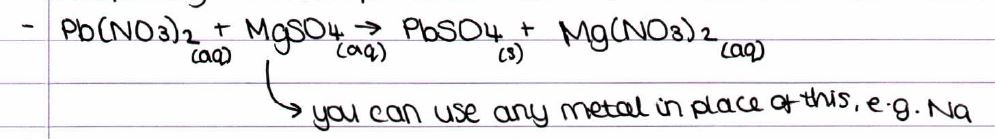 - Pb(NO3)2 (aq) + MgSO4 (aq) → PbSO4 (s) + Mg(NO3)2 (aq)
you can use any metal in place of this, e.g. Na